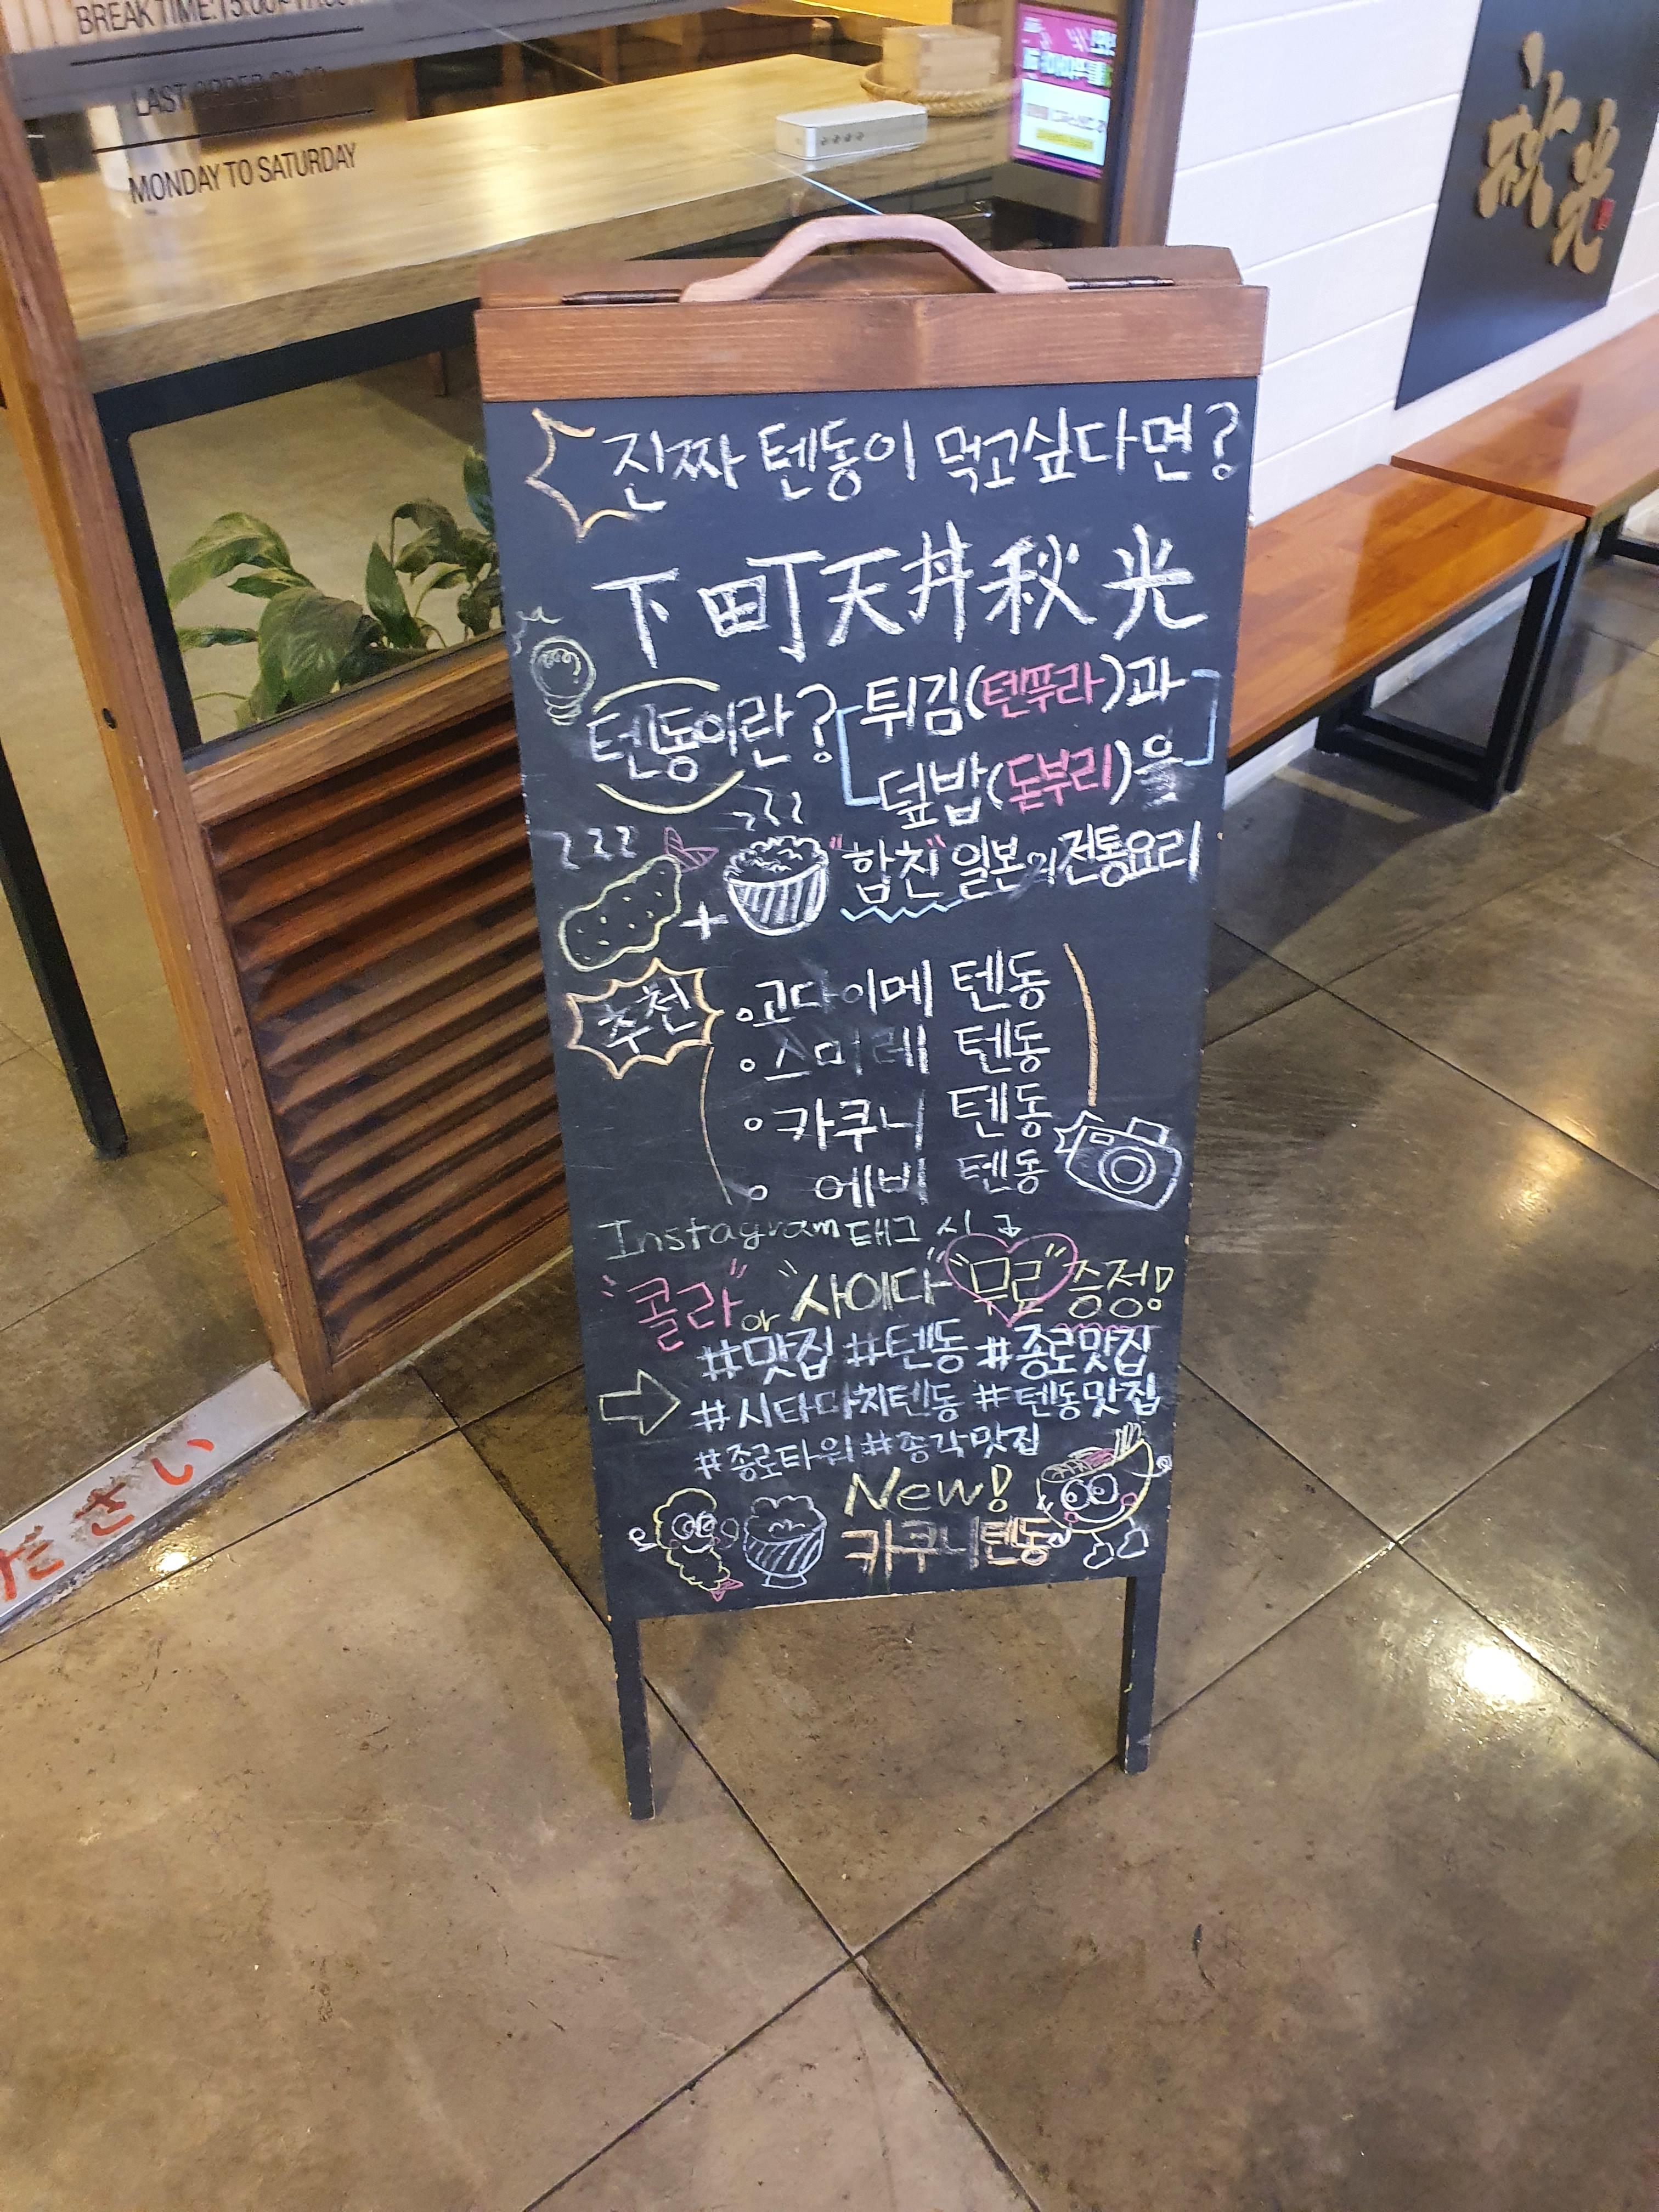 BREAK TIME:15:00-17:00
LAST ORDER
MONDAY TO SATURDAY
秋光
진짜 텐동이 먹고싶다면?
下町天丼秋光
텐동이란?
튀김(텐푸라)과
덮밥(돈부리)을
"합친" 일본의 전통요리
추천
고다이메 텐동
스미레 텐동
카쿠니 텐동
에비 텐동
Instagram 태그 시
"콜라" or "사이다" "무료" 증정!
#맛집 #텐동 #종로맛집
#시타마치텐동 #텐동맛집
#종로타워 #종각맛집
New!
카쿠니텐동
ださい